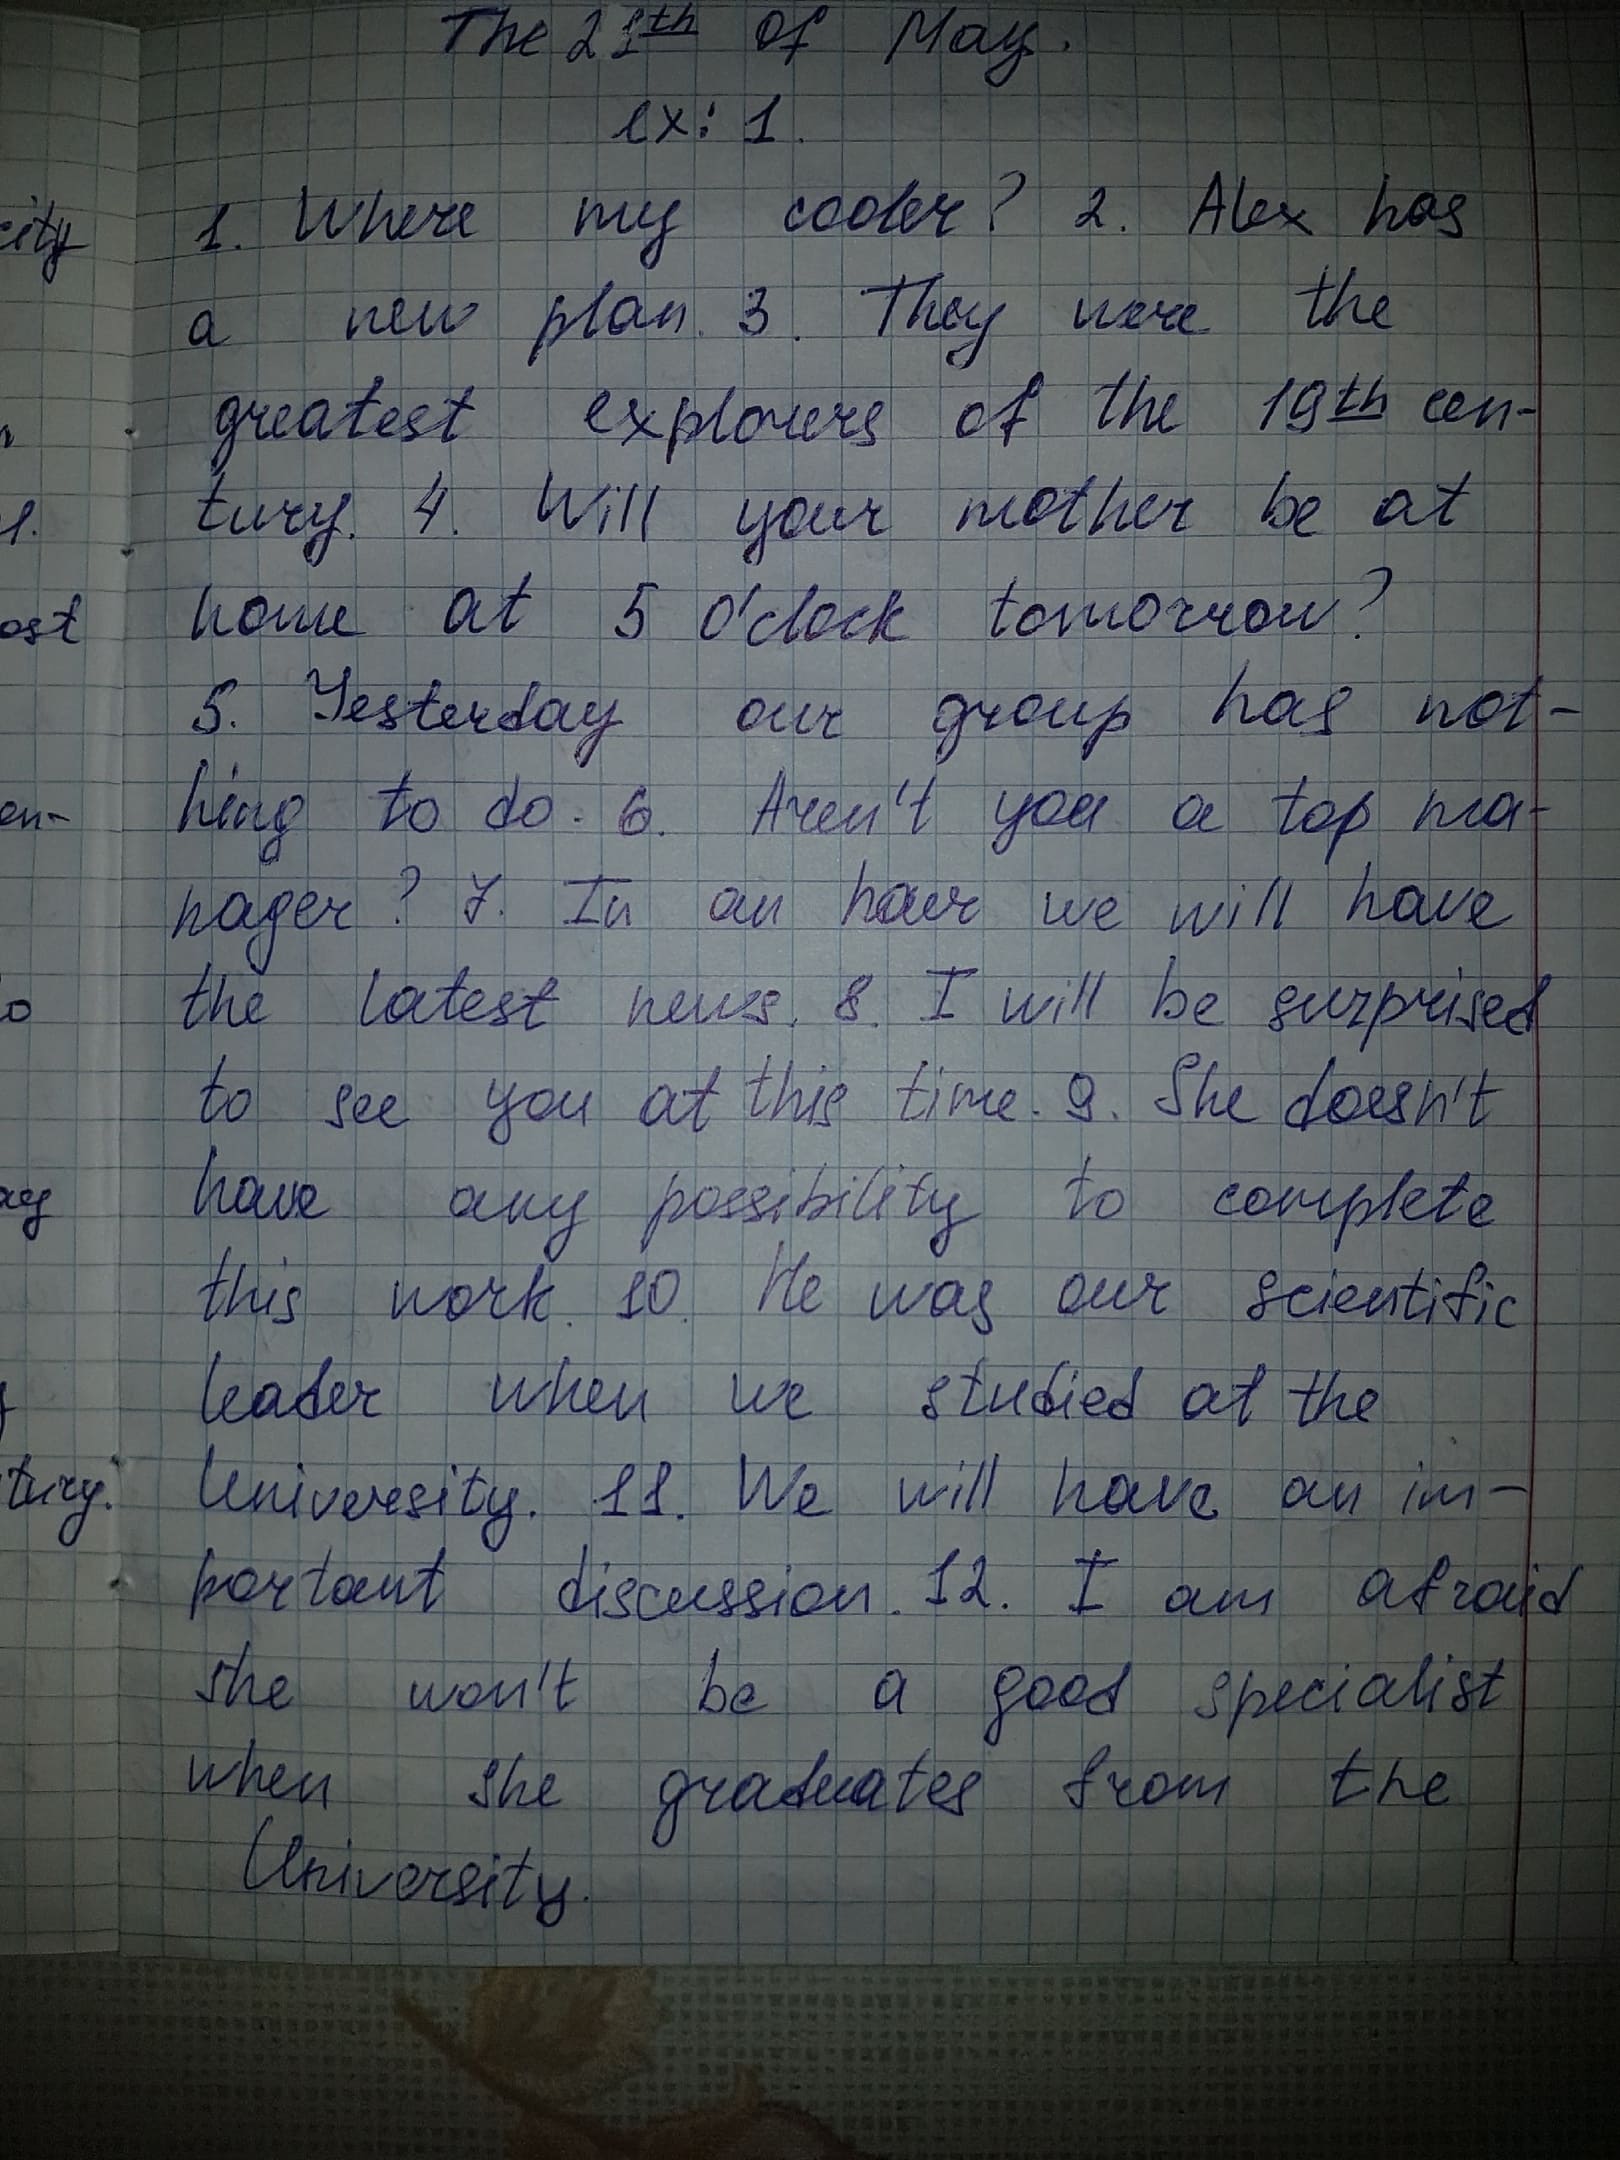 The 21th of May.
ex: 1.
1. Where my cooler? 2. Alex has
a new plan. 3. They were the
greatest explorers of the 19th cen-
tury. 4. Will your mother be at
home at 5 o'clock tomorrow?
5. Yesterday our group has not-
hing to do. 6. Aren't you a top ma-
nager? 7. In an hour we will have
the latest news. 8. I will be surprised
to see you at this time. 9. She doesn't
have any possibility to complete
this work. 10. He was our scientific
leader when we studied at the
University. 11. We will have an im-
portant discussion. 12. I am afraid
she won't be a good specialist
when she graduates from the
University.
city
ost
en-
tury.